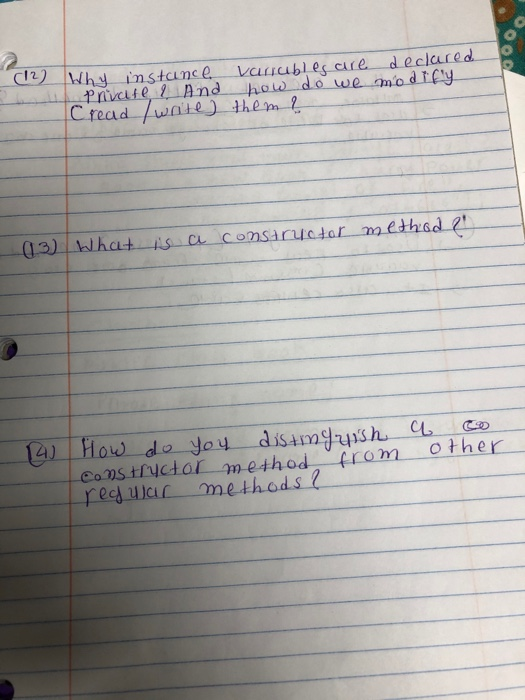 (12) Why instance variables are declared
private? And how do we modify
(read / write) them?
(13) What is a constructor method?
(14) How do you distinguish a co
constructor method from other
regular methods?